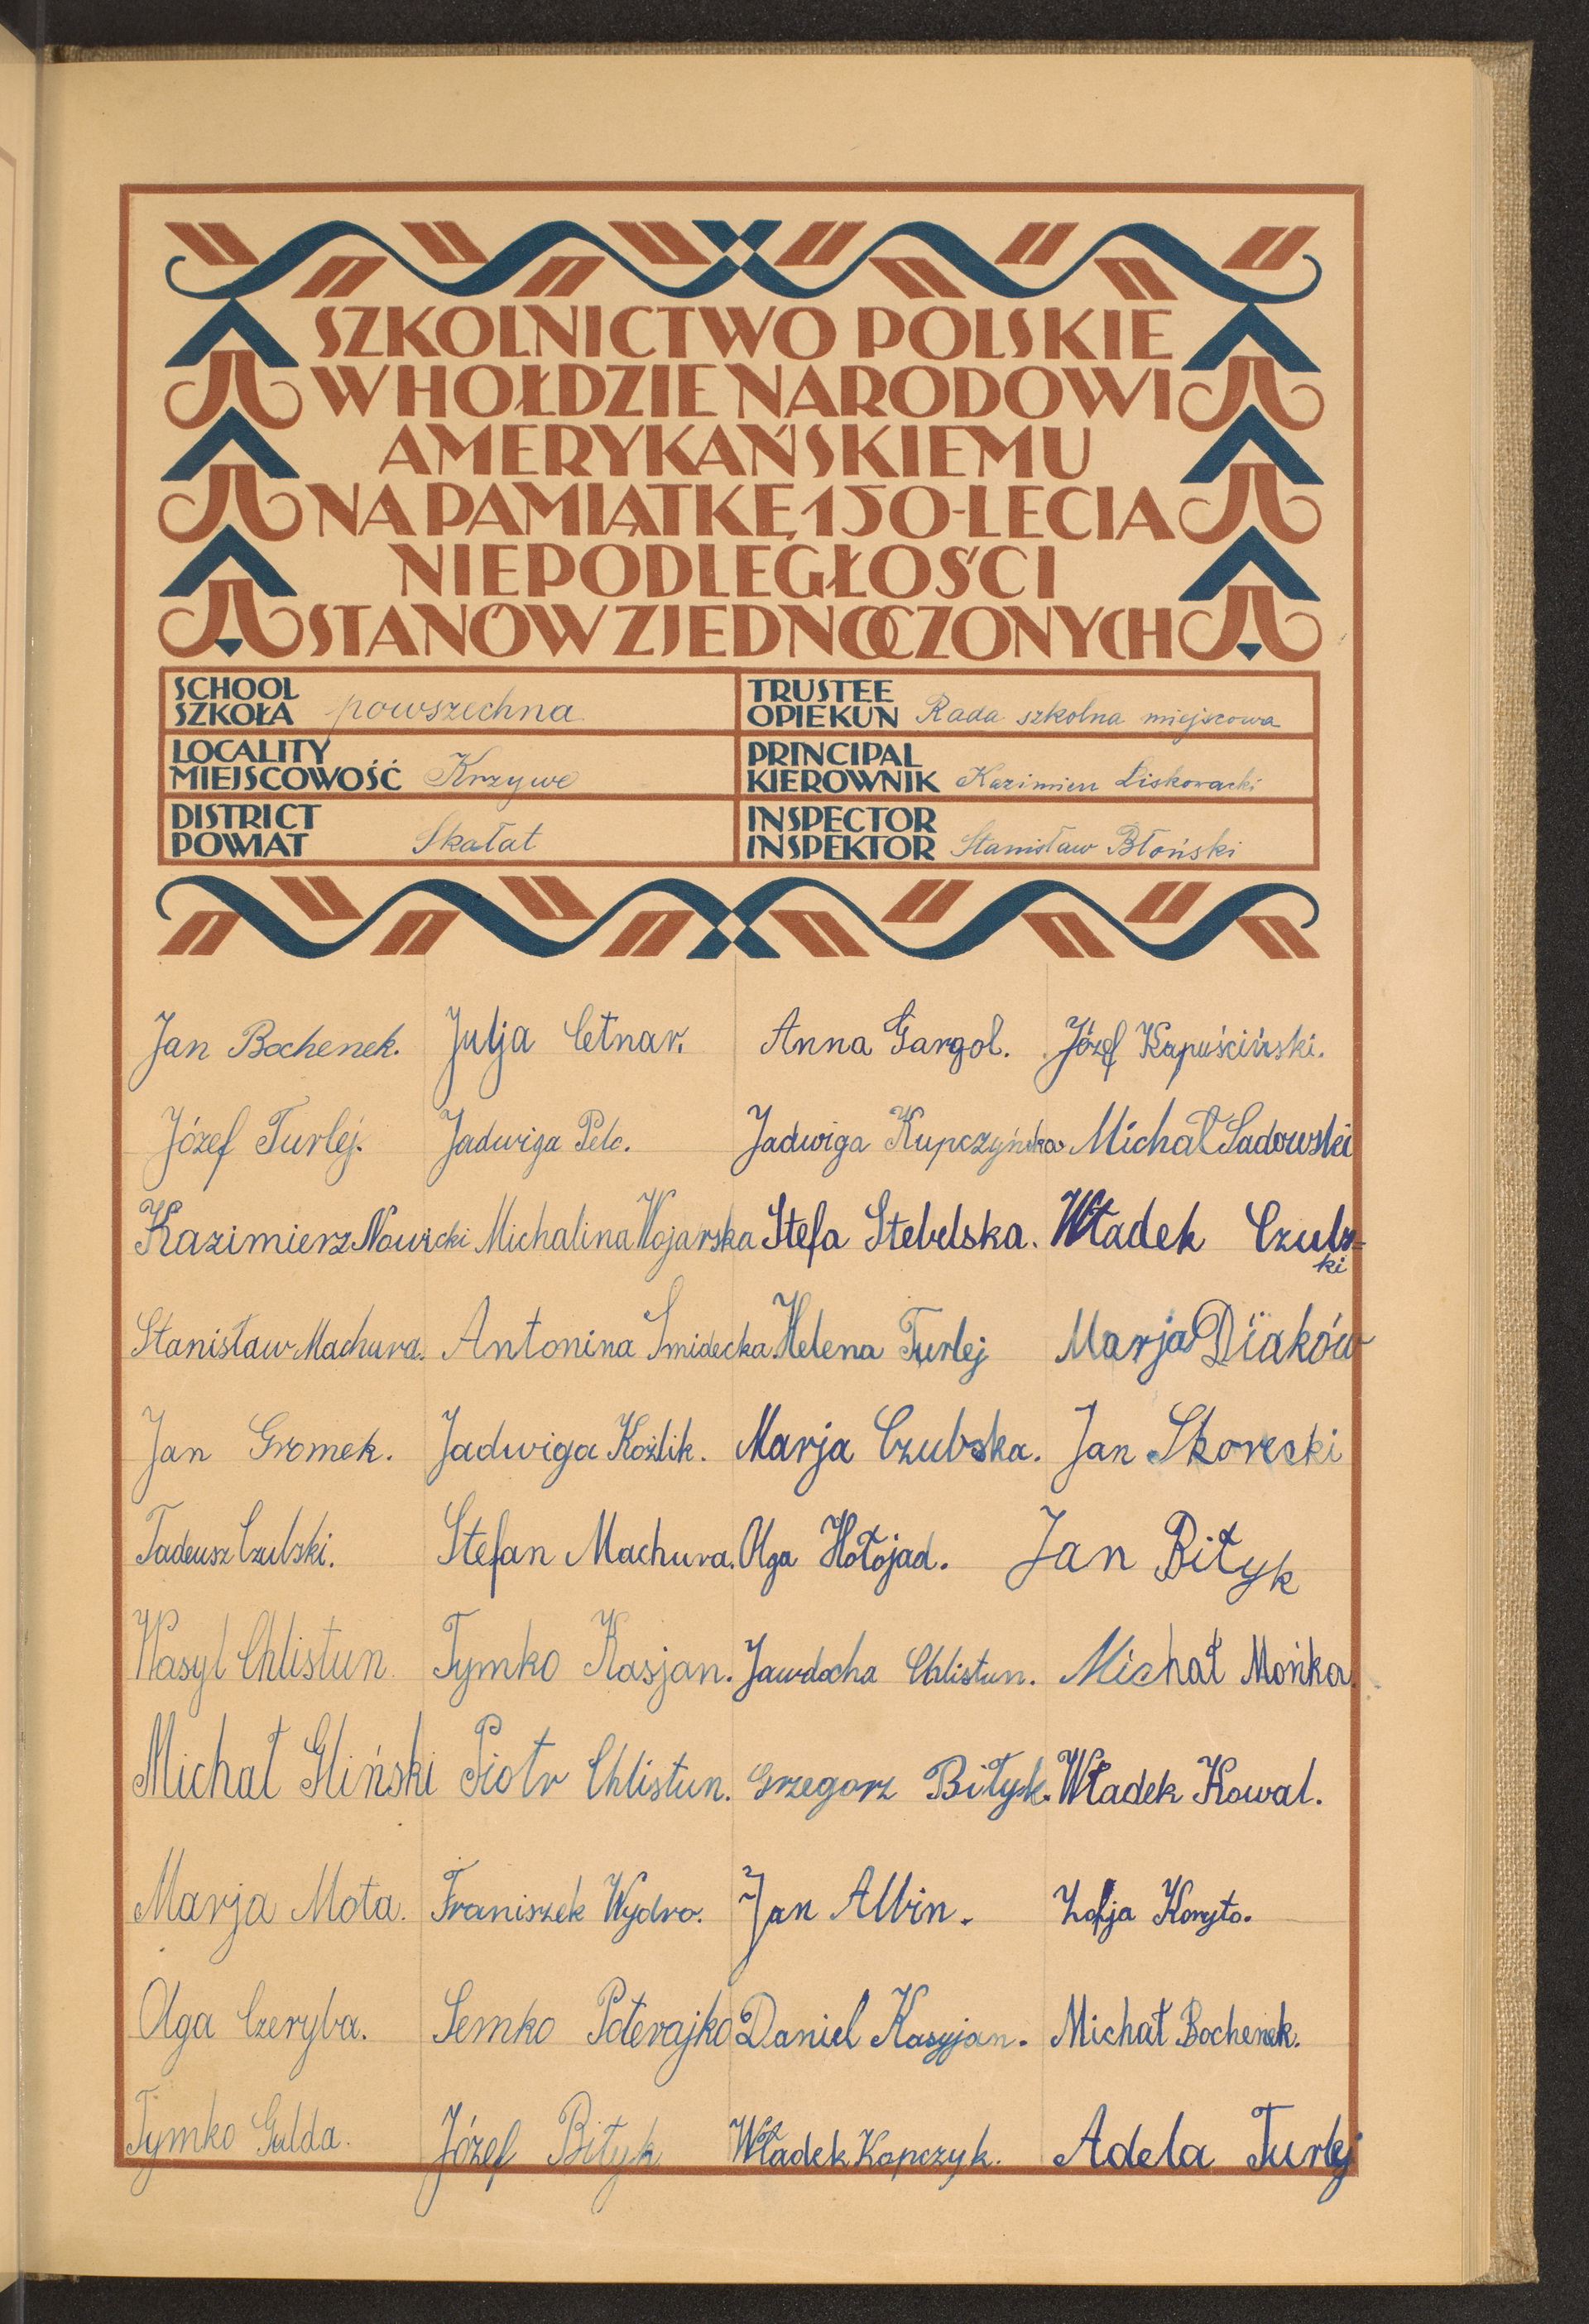 SZKOLNICTWO POLSKIE
W HOŁDZIE NARODOWI
AMERYKAŃSKIEMU
NA PAMIĄTKĘ 150-LECIA
NIEPODLEGŁOŚCI
STANÓW ZJEDNOCZONYCH
SCHOOL
SZKOŁA powszechna
TRUSTEE
OPIEKUN Rada szkolna miejscowa
LOCALITY
MIEJSCOWOŚĆ Krzywe
PRINCIPAL
KIEROWNIK Kazimierz Liskowacki
DISTRICT
POWIAT Skałat
INSPECTOR
INSPEKTOR Stanisław Błoński
Jan Bochenek. Julja Cetnar. Anna Gargol. Józef Kapuściński.
Józef Turlej. Jadwiga Pelc. Jadwiga Kupczyńska Michał Sadowski
Kazimierz Nowicki Michalina Wojarska Stefa Stebelska. Władek Czubs=
ki
Stanisław Machura. Antonina Smidecka. Helena Turlej Marja Dïaków
Jan Gromek. Jadwiga Koźlik. Marja Czubska. Jan Skorecki
Tadeusz Czubski. Stefan Machura. Olga Hołojad. Jan Biłyk
Wasyl Chlistun. Tymko Kasjan. Jawdocha Chlistun. Michał Mońka.
Michał Gliński Piotr Chlistun. Grzegorz Biłyk. Władek Kowal.
Marja Mota. Franiszek Wydro. Jan Albin. Zofja Koryto.
Olga Czeryba. Semko Poterajko Daniel Kasyjan. Michał Bochenek.
Tymko Gulda. Józef Biłyk Władek Kopczyk. Adela Turlej